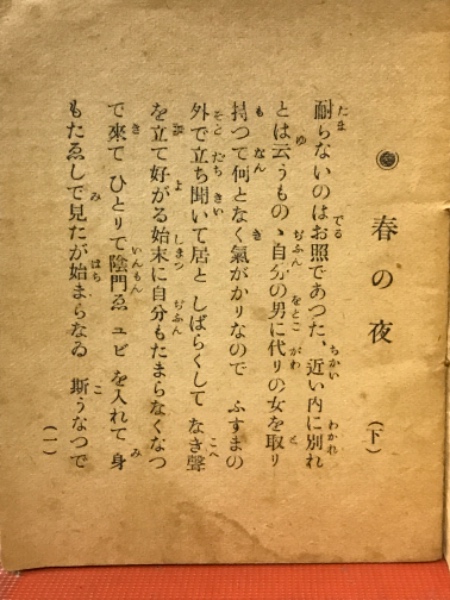 春の夜（下）
耐らないのはお照であつた、近い内に別れ
とは云うものゝ自分の男に代りの女を取り
持つて何となく氣がかりなので ふすまの
外で立ち聞いて居と しばらくして なき聲
を立て好がる始末に自分もたまらなくなつ
で來て ひとりて陰門ゑ ユビ を入れて 身
もたゑしで見たが始まらなゐ 斯うなつで
（一）